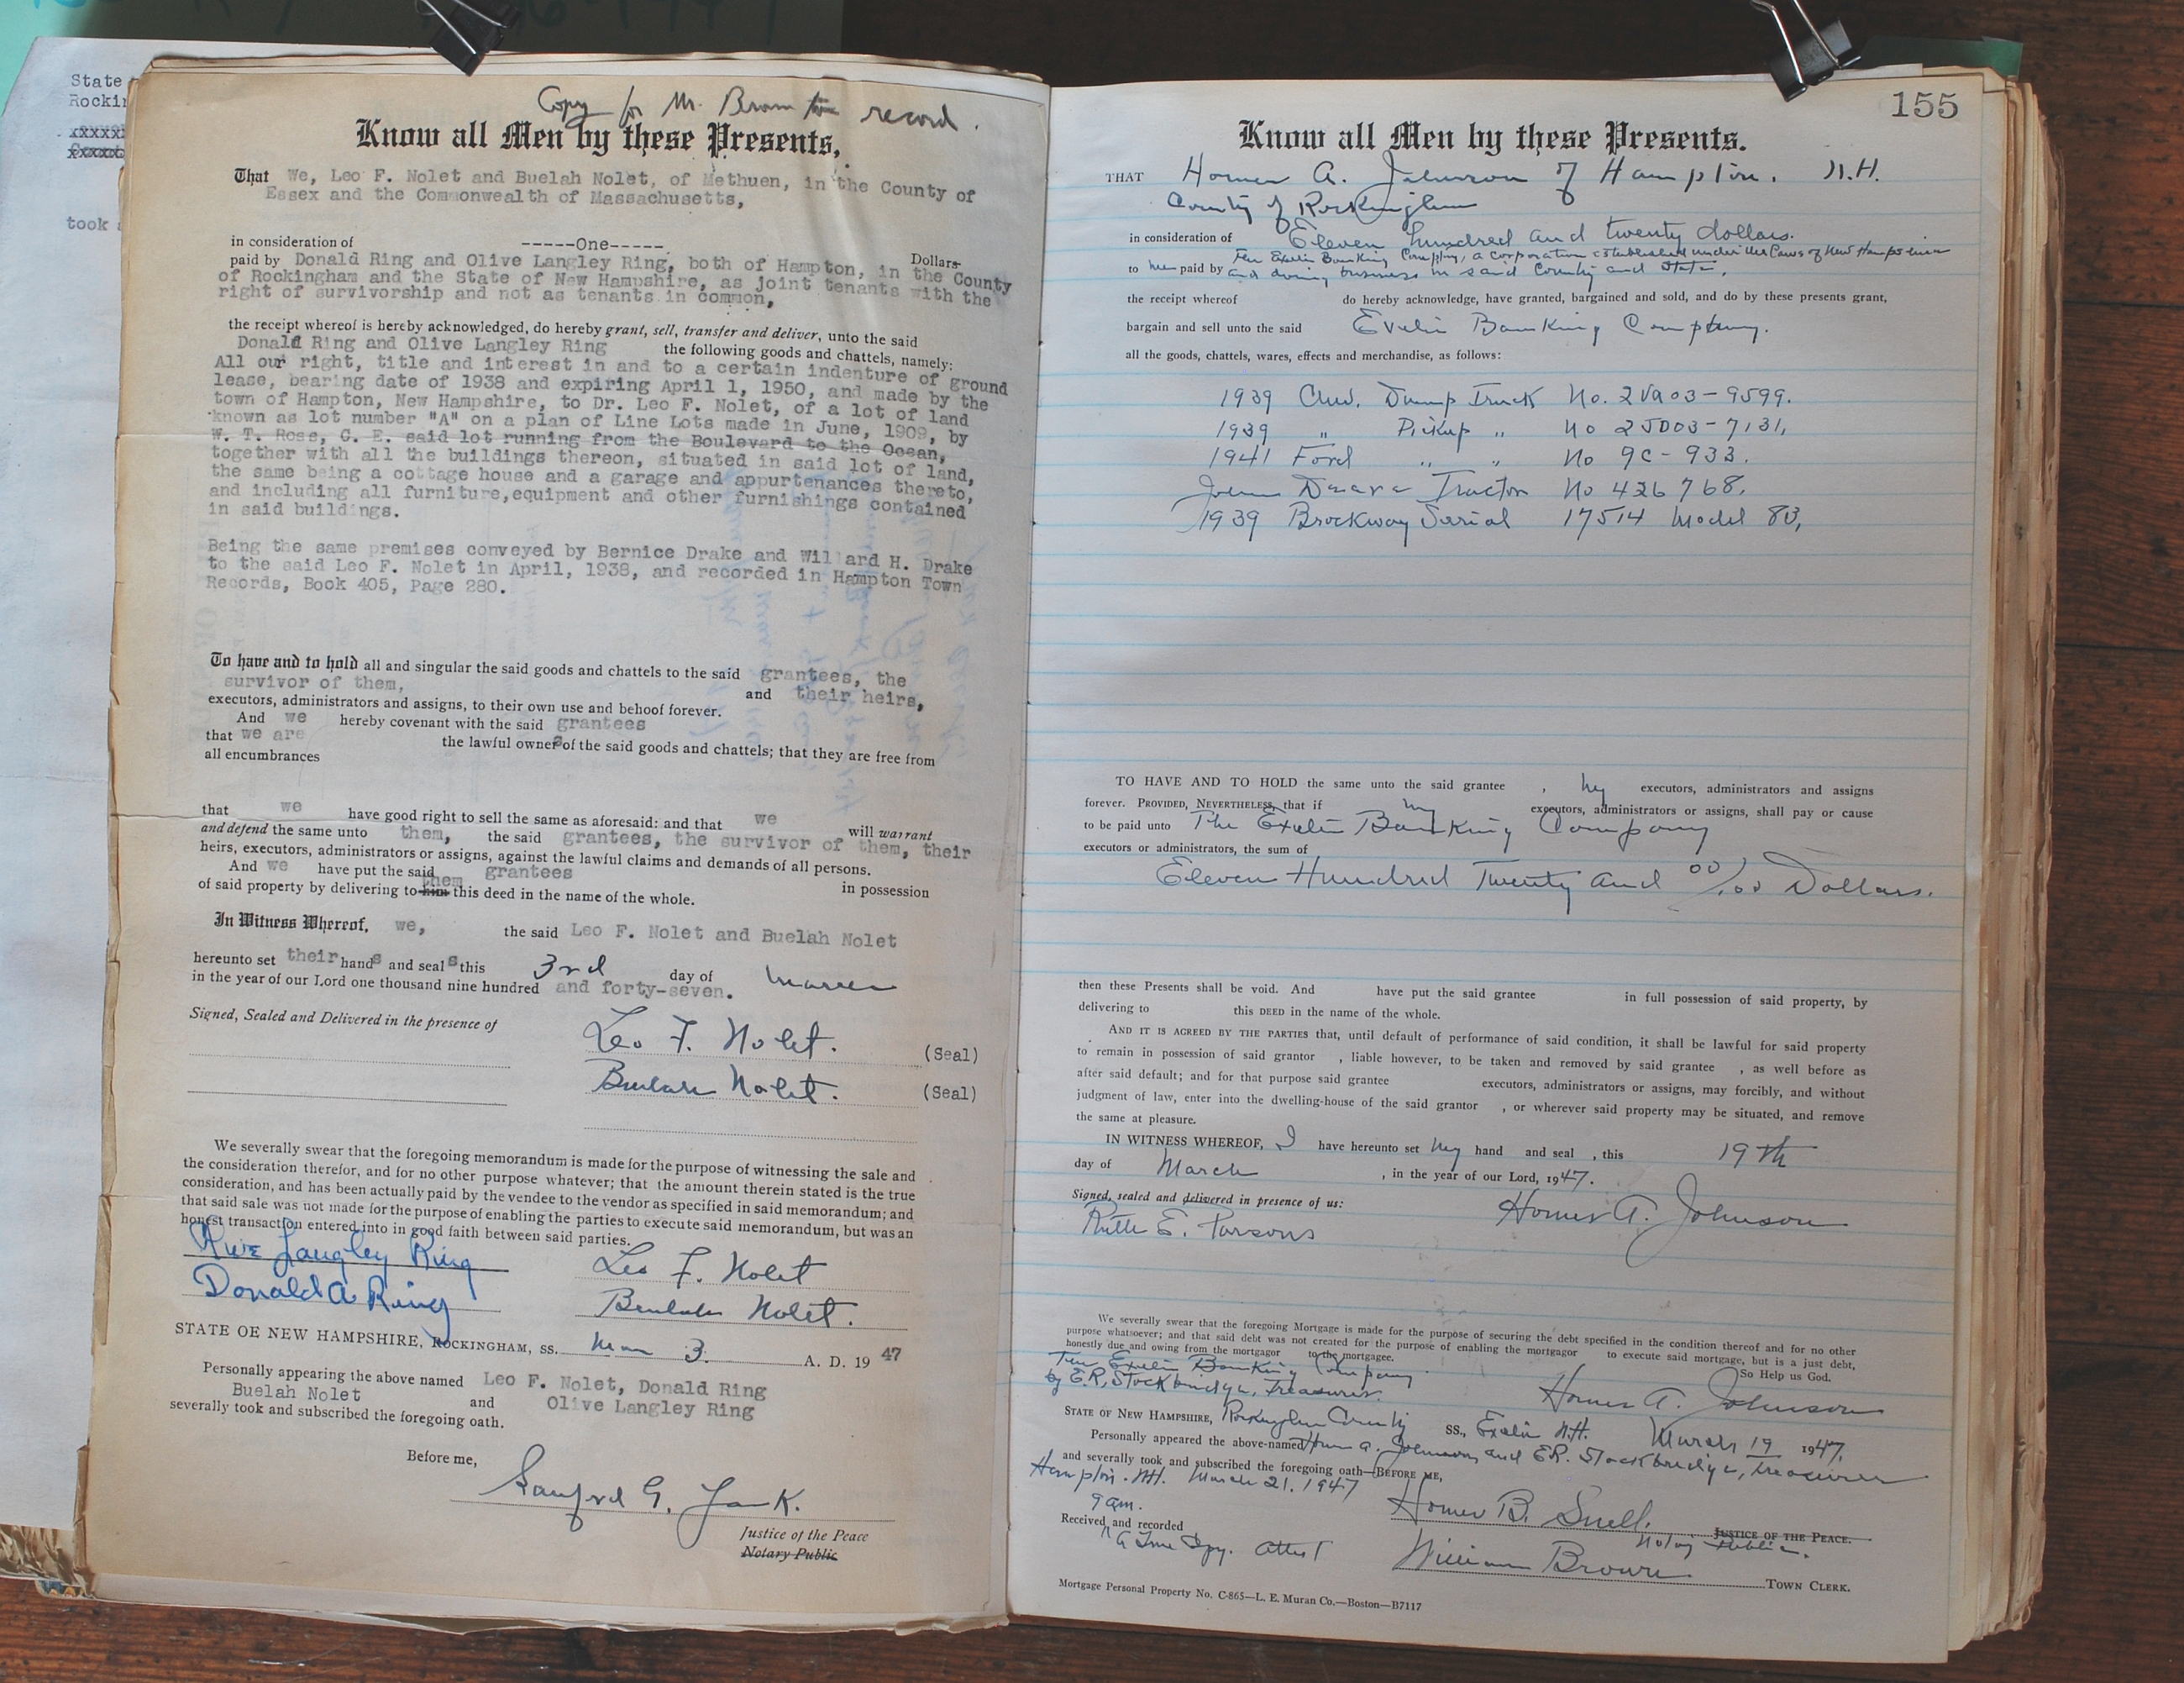 State
Rockin
xxxxx
took a
Copy for Mr. Brown to record.
Know all Men by these Presents,
That We, Leo F. Nolet and Buelah Nolet, of Methuen, in the County of
Essex and the Commonwealth of Massachusetts,
in consideration of -----One-----
Dollars
paid by Donald Ring and Olive Langley Ring, both of Hampton, in the County
of Rockingham and the State of New Hampshire, as joint tenants with the
right of survivorship and not as tenants in common,
the receipt whereof is hereby acknowledged, do hereby grant, sell, transfer and deliver, unto the said
Donald Ring and Olive Langley Ring the following goods and chattels, namely:
All our right, title and interest in and to a certain indenture of ground
lease, bearing date of 1938 and expiring April 1, 1950, and made by the
town of Hampton, New Hampshire, to Dr. Leo F. Nolet, of a lot of land
known as lot number "A" on a plan of Line Lots made in June, 1909, by
W. T. Ross, C. E. said lot running from the Boulevard to the Ocean,
together with all the buildings thereon, situated in said lot of land,
the same being a cottage house and a garage and appurtenances thereto,
and including all furniture,equipment and other furnishings contained
in said buildings.
Being the same premises conveyed by Bernice Drake and Willard H. Drake
to the said Leo F. Nolet in April, 1938, and recorded in Hampton Town
Records, Book 405, Page 280.
To have and to hold all and singular the said goods and chattels to the said grantees, the
survivor of them, and their heirs,
executors, administrators and assigns, to their own use and behoof forever.
And we hereby covenant with the said grantees
that we are the lawful owners of the said goods and chattels; that they are free from
all encumbrances
that we have good right to sell the same as aforesaid: and that we will warrant
and defend the same unto them, the said grantees, the survivor of them, their
heirs, executors, administrators or assigns, against the lawful claims and demands of all persons.
And we have put the said grantees in possession
of said property by delivering to him them this deed in the name of the whole.
In Witness Whereof, we, the said Leo F. Nolet and Buelah Nolet
hereunto set their hands and seals this 3rd day of March
in the year of our Lord one thousand nine hundred and forty-seven.
Signed, Sealed and Delivered in the presence of
Leo F. Nolet. (Seal)
Beulah Nolet. (Seal)
We severally swear that the foregoing memorandum is made for the purpose of witnessing the sale and
the consideration therefor, and for no other purpose whatever; that the amount therein stated is the true
consideration, and has been actually paid by the vendee to the vendor as specified in said memorandum; and
that said sale was not made for the purpose of enabling the parties to execute said memorandum, but was an
honest transaction entered into in good faith between said parties.
Olive Langley Ring Leo F. Nolet
Donald A Ring Beulah Nolet.
STATE OF NEW HAMPSHIRE, ROCKINGHAM, SS. Mar 3. A. D. 19 47
Personally appearing the above named Leo F. Nolet, Donald Ring
Buelah Nolet and Olive Langley Ring
severally took and subscribed the foregoing oath.
Before me,
Sanford G.
Justice of the Peace
Notary Public
155
Know all Men by these Presents.
THAT Homer A. Johnson of Hampton, N.H.
County of Rockingham
in consideration of Eleven hundred and twenty dollars.
to me paid by The Exeter Banking Company, a corporation established under the laws of New Hampshire
and doing business in said County and State,
the receipt whereof do hereby acknowledge, have granted, bargained and sold, and do by these presents grant,
bargain and sell unto the said Exeter Banking Company.
all the goods, chattels, wares, effects and merchandise, as follows:
1939 Chev. Dump Truck No. 2VA03-9599.
1939 " Pickup " No 2JD03-7131,
1941 Ford " " No 9C-933.
John Deere Tractor No 426768.
1939 Brockway Serial 17514 Model 83,
TO HAVE AND TO HOLD the same unto the said grantee , my executors, administrators and assigns
forever. PROVIDED, NEVERTHELESS, that if my executors, administrators or assigns, shall pay or cause
to be paid unto The Exeter Banking Company
executors or administrators, the sum of
Eleven Hundred Twenty and 00/100 Dollars.
then these Presents shall be void. And have put the said grantee in full possession of said property, by
delivering to this DEED in the name of the whole.
AND IT IS AGREED BY THE PARTIES that, until default of performance of said condition, it shall be lawful for said property
to remain in possession of said grantor , liable however, to be taken and removed by said grantee , as well before as
after said default; and for that purpose said grantee executors, administrators or assigns, may forcibly, and without
judgment of law, enter into the dwelling-house of the said grantor , or wherever said property may be situated, and remove
the same at pleasure.
IN WITNESS WHEREOF, I have hereunto set my hand and seal , this 19th
day of March , in the year of our Lord, 1947.
Signed, sealed and delivered in presence of us:
Ruth E. Parsons Homer A. Johnson
We severally swear that the foregoing Mortgage is made for the purpose of securing the debt specified in the condition thereof and for no other
purpose whatsoever; and that said debt was not created for the purpose of enabling the mortgagor to execute said mortgage, but is a just debt,
honestly due and owing from the mortgagor to the mortgagee.
So Help us God.
The Exeter Banking Company
by E.R. Stockbridge, Treasurer. Homer A. Johnson
STATE OF NEW HAMPSHIRE, Rockingham County SS., Exeter N.H. March 19 1947,
Personally appeared the above-named Homer A. Johnson and E.R. Stockbridge, treasurer
and severally took and subscribed the foregoing oath—BEFORE ME,
Hampton. NH. March 21, 1947
9 am. Homer B. Snell.
JUSTICE OF THE PEACE.
Notary Public.
Received and recorded
A True Copy. Attest William Brown TOWN CLERK.
Mortgage Personal Property No. C-865—L. E. Muran Co.—Boston—B7117